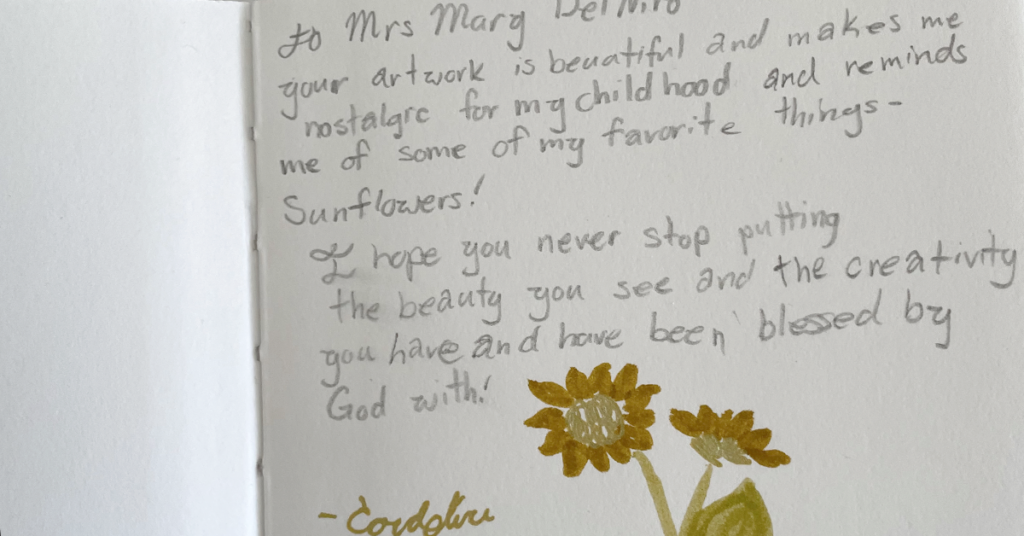 to Mrs Mary
your artwork is beuatiful and makes me
nostalgic for my childhood and reminds
me of some of my favorite things-
Sunflowers!
I hope you never stop putting
the beauty you see and the creativity
you have and have been blessed by
God with!